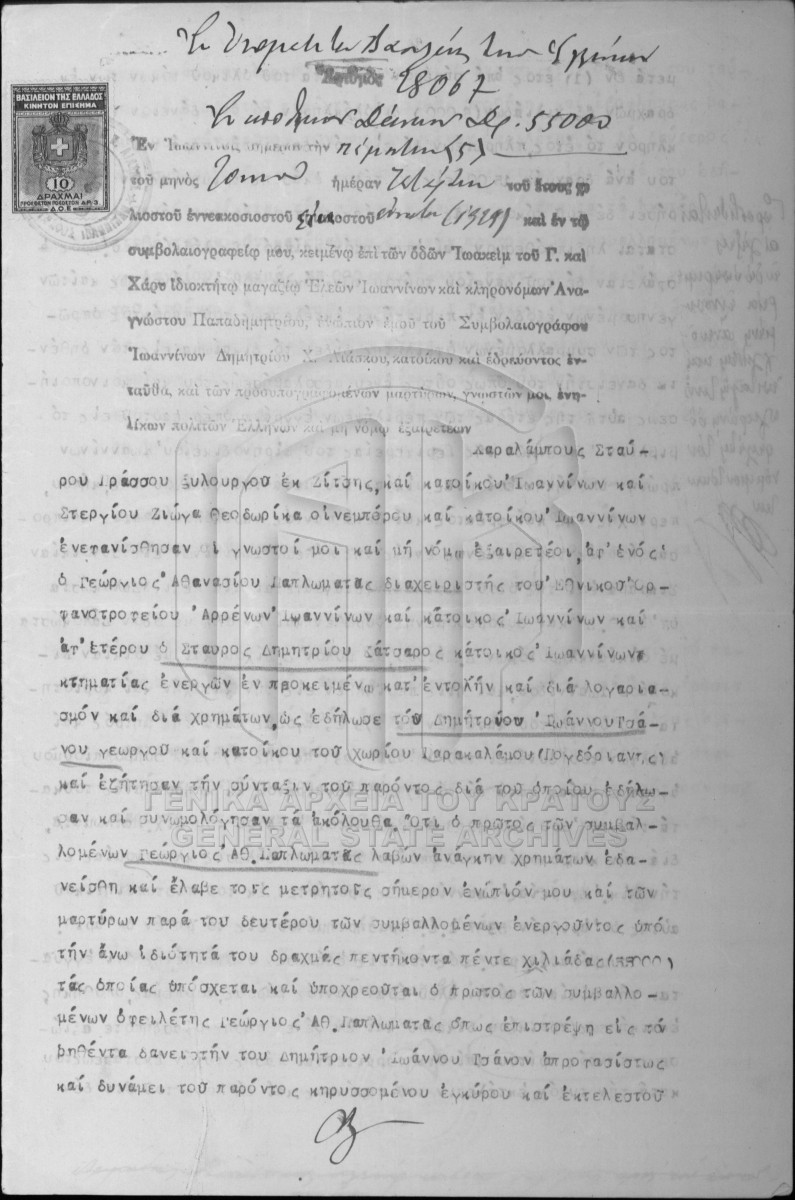 Ἐν Ὀνόματι τοῦ Βασιλέως τῶν Ἑλλήνων
Ἀριθμὸς
28067
ΒΑΣΙΛΕΙΟΝ ΤΗΣ ΕΛΛΑΔΟΣ
ΚΙΝΗΤΟΝ ΕΠΙΣΗΜΑ
10
ΔΡΑΧΜΑΙ
Δρ. 55000
Ἐν Ἰωαννίνοις σήμερον τὴν πέμπτην (5)
τοῦ μηνὸς ἡμέραν τοῦ ἔτους χι
λιοστοῦ ἐννεακοσιοστοῦ καὶ ἐν τῷ
συμβολαιογραφείῳ μου, κειμένῳ ἐπὶ τῶν ὁδῶν Ἰωακεὶμ τοῦ Γ. καὶ
Χάρυ ἰδιοκτήτῳ μαγαζίῳ Ἐλεῶν Ἰωαννίνων καὶ κληρονόμων Ἀνα-
γνώστου Παπαδημητρίου, ἐνώπιον ἐμοῦ τοῦ Συμβολαιογράφου
Ἰωαννίνων Δημητρίου Χ. κατοίκου καὶ ἑδρεύοντος ἐν-
ταῦθα, καὶ τῶν προσυπογραφομένων μαρτύρων, γνωστῶν μοι ἐνη-
λίκων πολιτῶν Ἑλλήνων καὶ μὴ νόμῳ ἐξαιρετέων
Χαραλάμπους Σταύ-
ρου Γράσσου ξυλουργοῦ ἐκ Ζίτσης, καί κατοίκου Ἰωαννίνων καί
Στεργίου Ζιώγα Θεοδωρίκα οἰνεμπόρου καί κατοίκου Ἰωαννίνων
ἐνεφανίσθησαν οἱ γνωστοί μοι καί μή νόμῳ ἐξαιρετέοι, ἀφ' ἑνός
ὁ Γεώργιος Ἀθανασίου Καπλωματᾶς διαχειριστής τοῦ Ἐθνικοῦ Ὀρ-
φανοτροφείου Ἀρρένων Ἰωαννίνων καί κάτοικος Ἰωαννίνων καί
ἀφ' ἑτέρου ὁ Σταῦρος Δημητρίου Κάτσαρος κάτοικος Ἰωαννίνων
κτηματίας ἐνεργῶν ἐν προκειμένῳ κατ' ἐντολήν καί διά λογαρια-
σμόν καί διά χρημάτων, ὡς ἐδήλωσε τοῦ Δημητρίου Ἰωάννου Τσά-
νου γεωργοῦ καί κατοίκου τοῦ χωρίου Παρακαλάμου (Πογδόριανης)
καί ἐζήτησαν τήν σύνταξιν τοῦ παρόντος διά τοῦ ὁποίου ἐδήλω-
σαν καί συνωμολόγησαν τά ἀκόλουθα. Ὅτι ὁ πρῶτος τῶν συμβαλ-
λομένων Γεώργιος Ἀθ. Καπλωματᾶς λαβών ἀνάγκην χρημάτων ἐδα-
νείσθη καί ἔλαβε τοῖς μετρητοῖς σήμερον ἐνώπιόν μου καί τῶν
μαρτύρων παρά τοῦ δευτέρου τῶν συμβαλλομένων ἐνεργοῦντος ὑπό
τήν ἄνω ἰδιότητά του δραχμάς πεντήκοντα πέντε χιλιάδας (55000)
τάς ὁποίας ὑπόσχεται καί ὑποχρεοῦται ὁ πρῶτος τῶν συμβαλλο-
μένων ὀφειλέτης Γεώργιος Ἀθ. Καπλωματᾶς ὅπως ἐπιστρέψῃ εἰς τόν
ῥηθέντα δανειστήν του Δημήτριον Ἰωάννου Τσάνον ἀπροφασίστως
καί δυνάμει τοῦ παρόντος κηρυσσομένου ἐγκύρου καί ἐκτελεστοῦ
ΓΕΝΙΚΑ ΑΡΧΕΙΑ ΤΟΥ ΚΡΑΤΟΥΣ
GENERAL STATE ARCHIVES